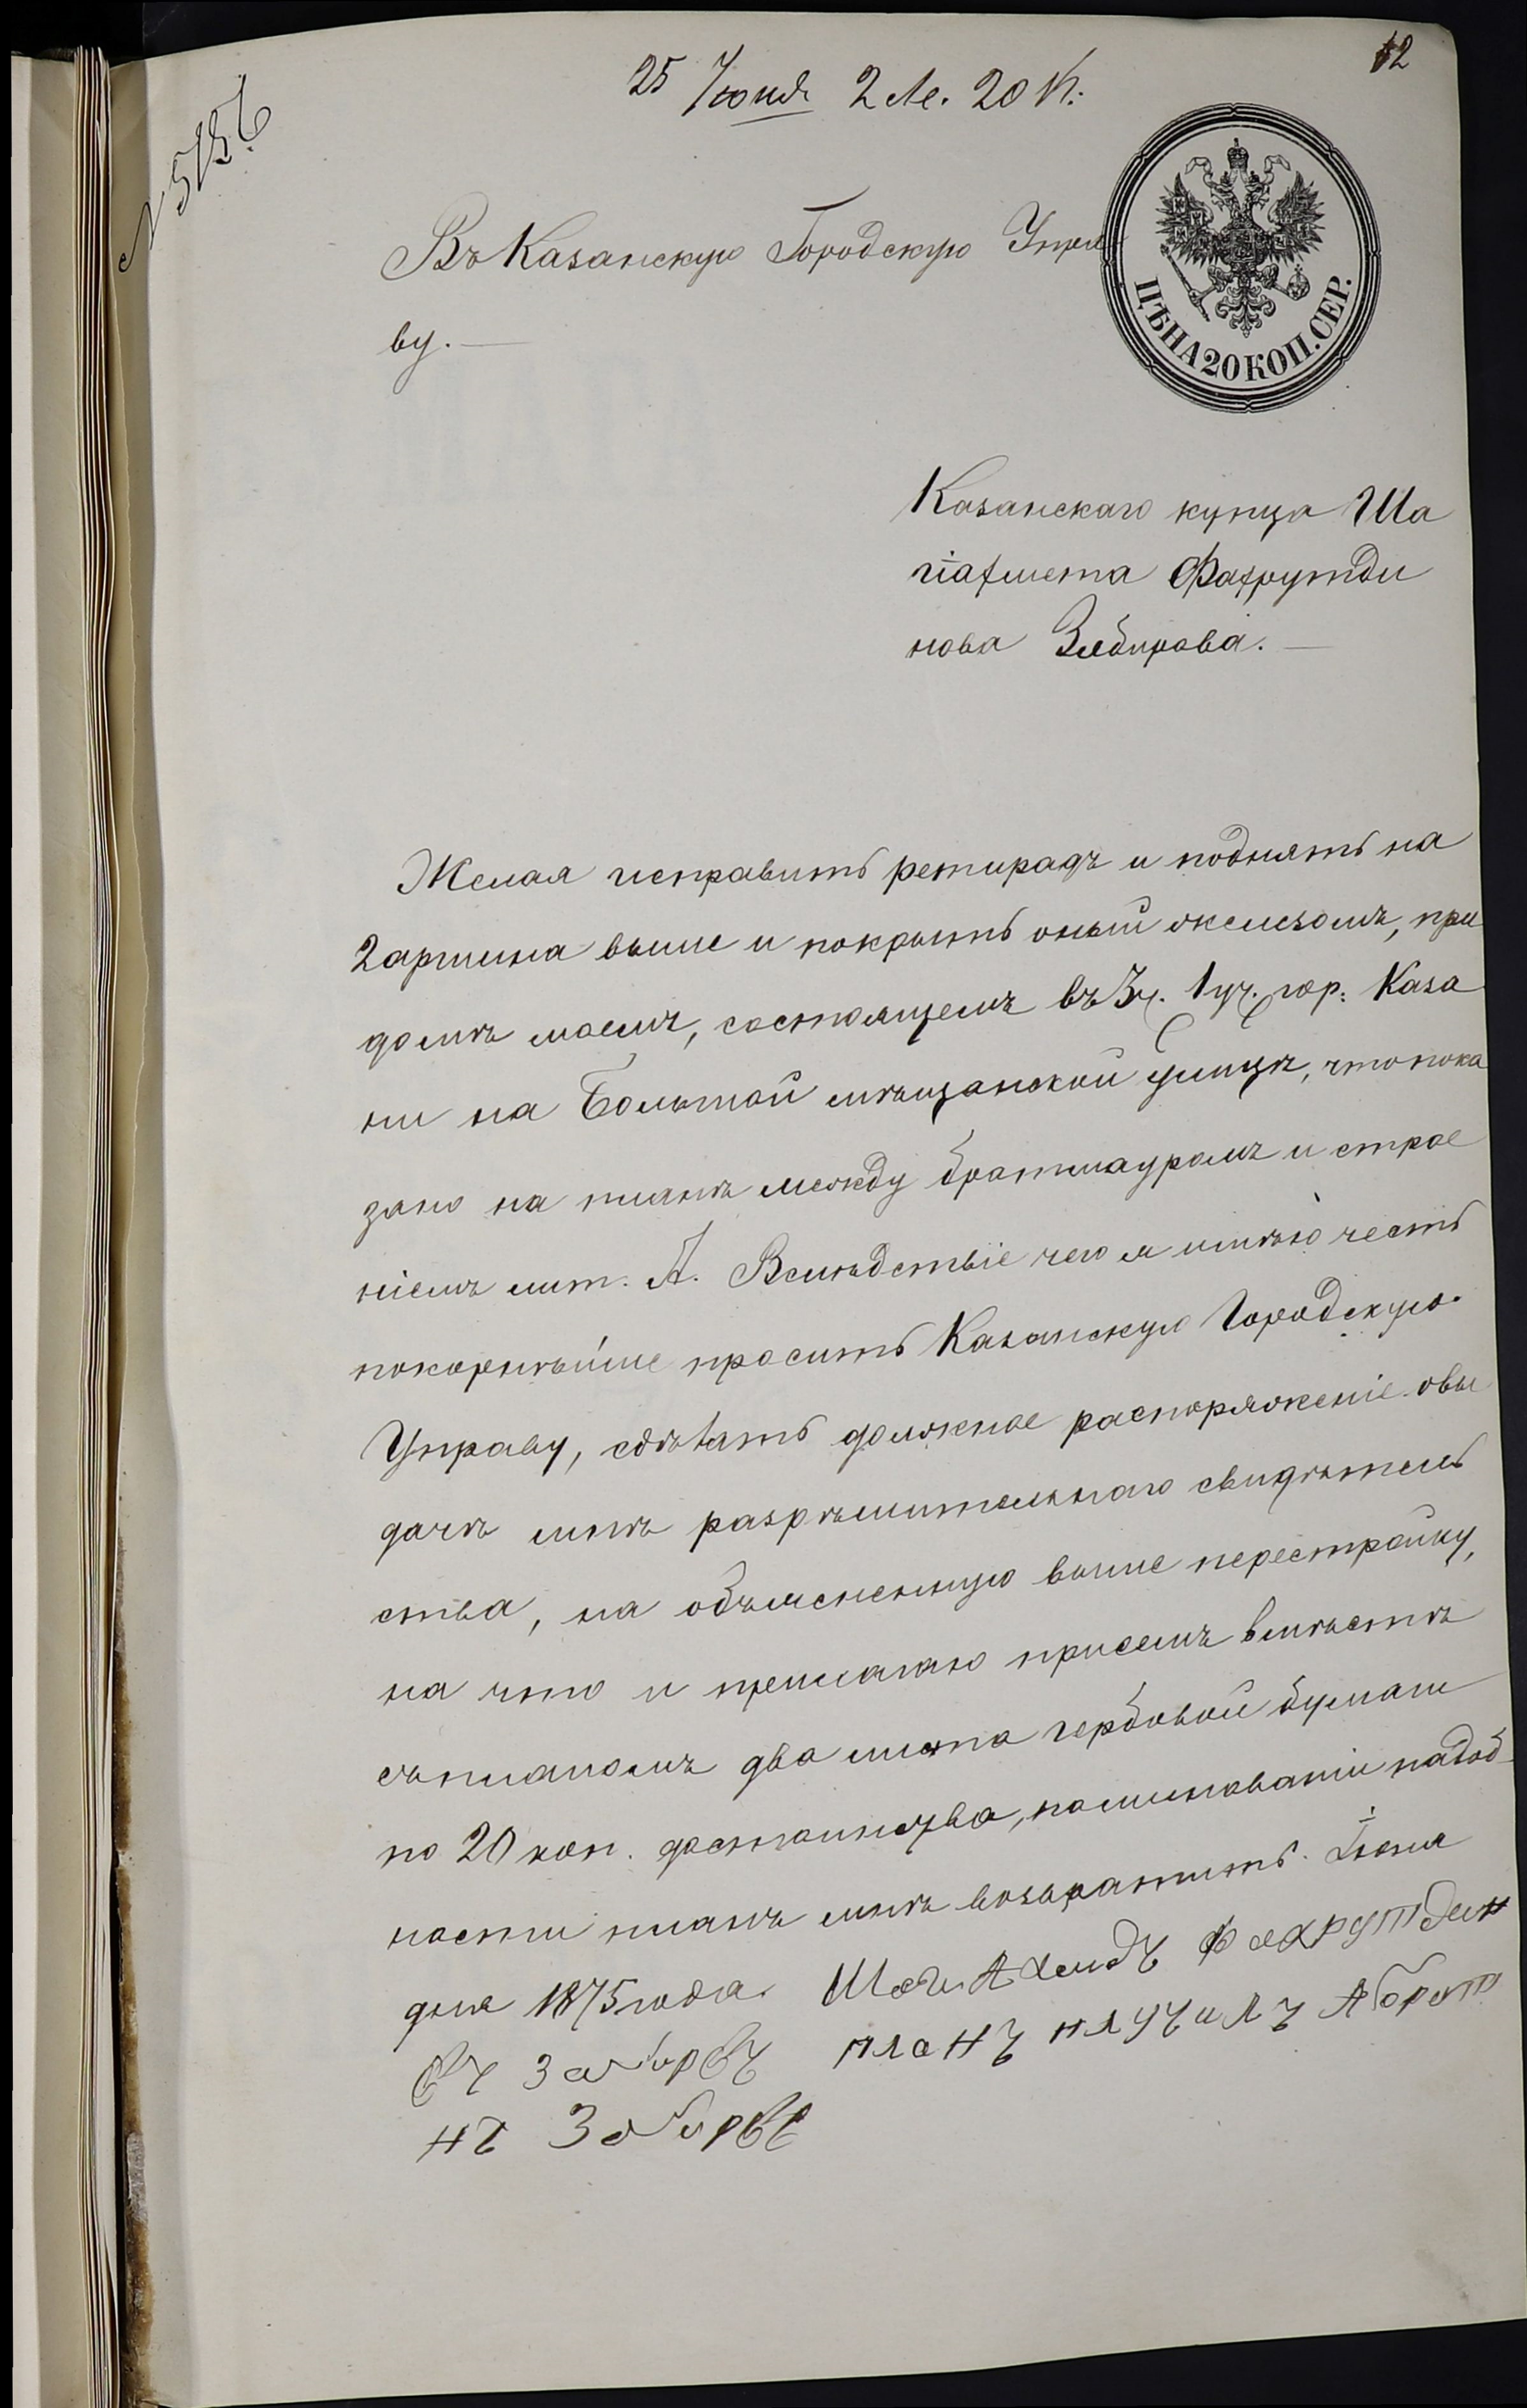 12
25 Іюня 2 ле. 20 к.
N 5156
Въ Казанскую Городскую Упра
ву.—
ЦѢНА 20 КОП. СЕР.
Казанскаго купца Ша
гіахмета Фахрутди
нова Забирова.—
Желая исправить ретирадъ и поднять на
2 аршина выше и покрыть оный железомъ, при
домѣ моемъ, состоящемъ въ 3 ч. 1 уч. гор. Каза
ни на Большой мѣщанской улицѣ, что пока
зано на планѣ между братмауромъ и строе
ніемъ лит. А. Вслѣдствіе чего я имѣю честь
покорнѣйше просить Казанскую Городскую
Управу, сдѣлать должное распоряженіе о вы
дачѣ мнѣ разрѣшительнаго свидѣтель
ства, на объясненную выше перестройку,
на что и прилагаю присемъ вмѣстѣ
съ планомъ два листа гербовой бумаги
по 20 коп. достоинства, поминованіи надоб-
ности планъ мнѣ возвратить. Іюня
дня 1875 года. ШагиАхмедъ Фахрутдин
въ Забировъ планъ плучилъ
нъ Забировъ